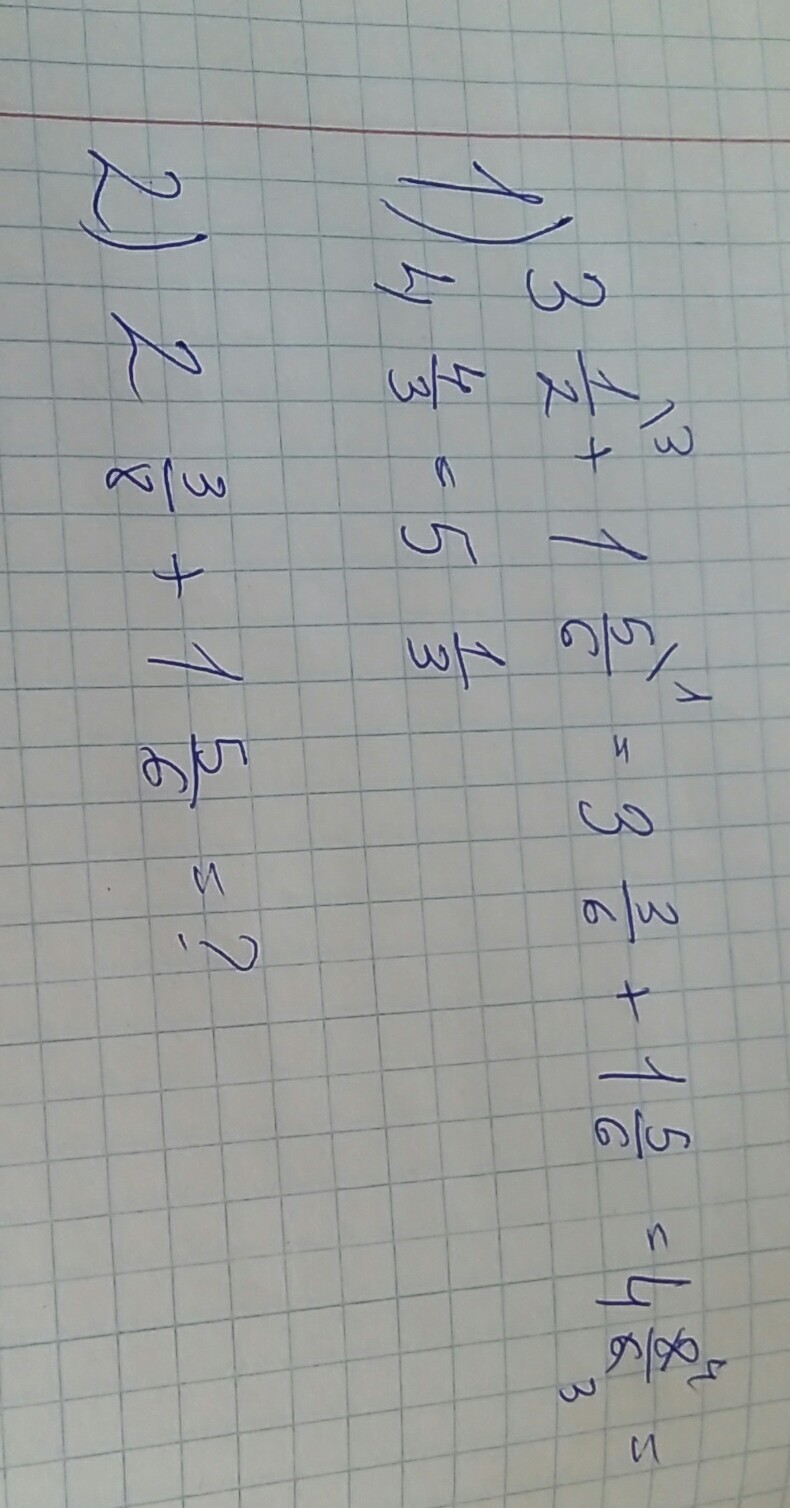 1) 3 1/2\3 + 1 5/6\1 = 3 3/6 + 1 5/6 = 4 8/6 4 3 =
4 4/3 = 5 1/3
2) 2 3/8 + 1 5/6 = ?